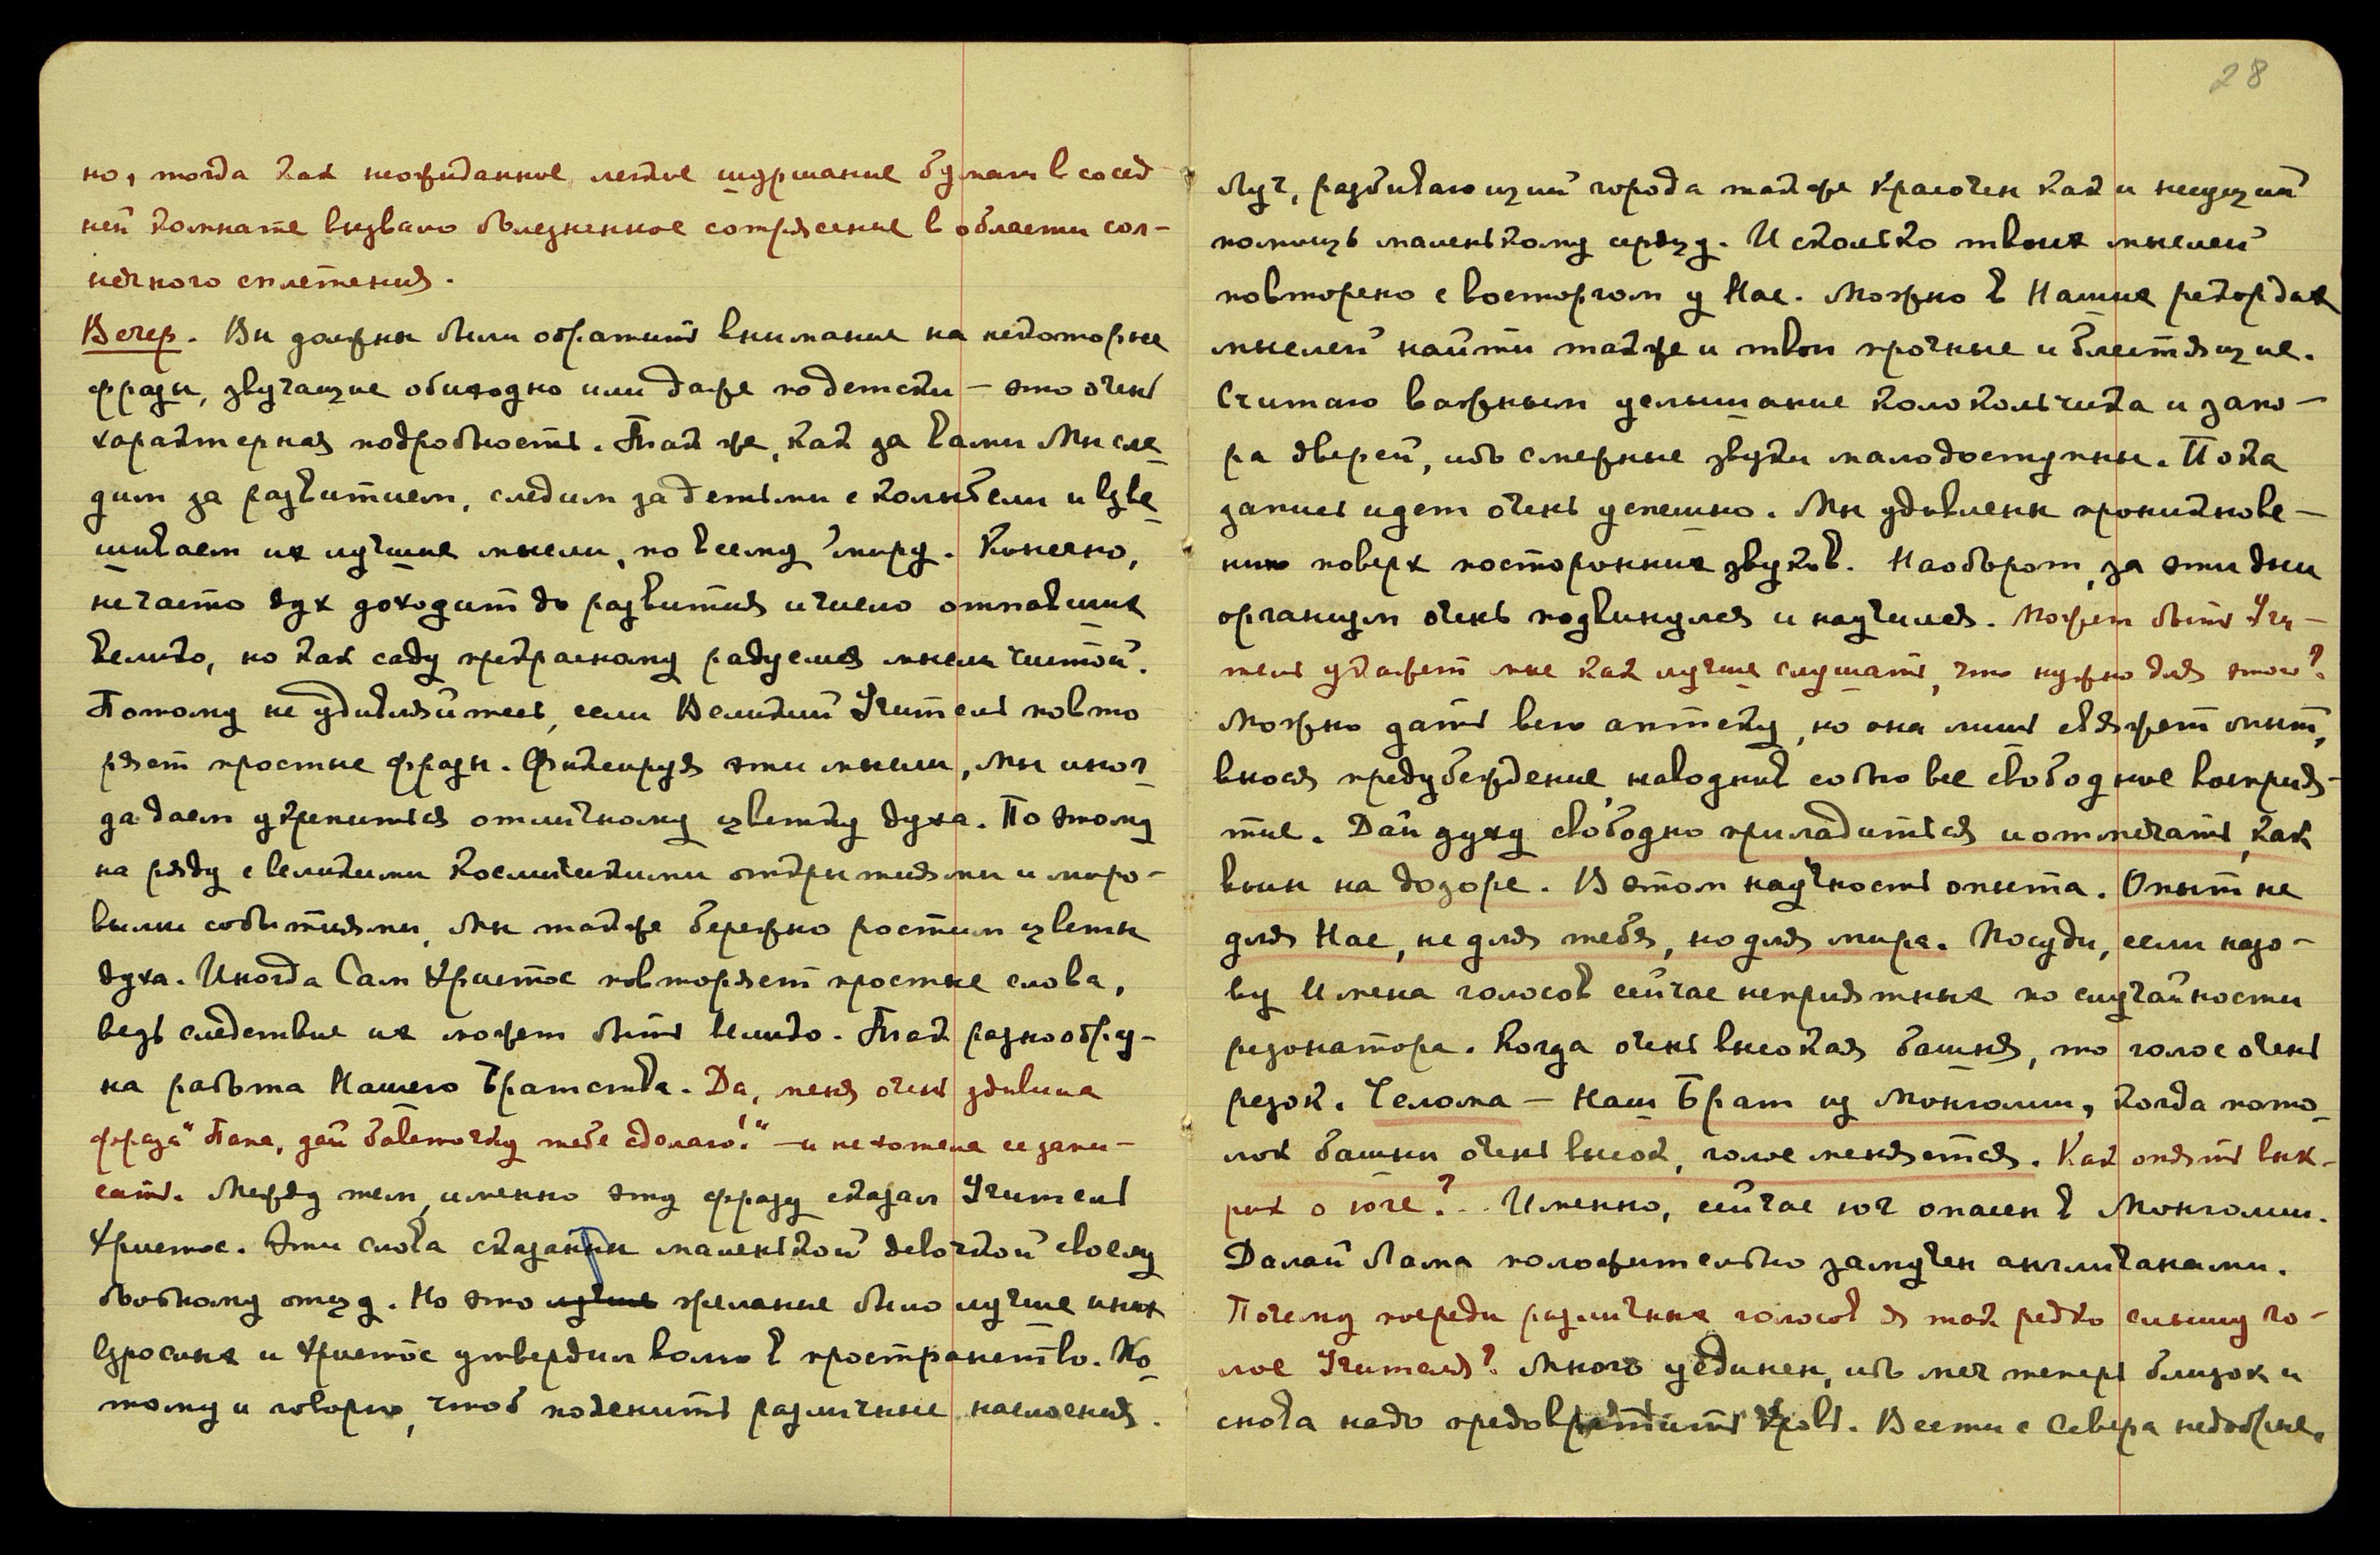 но, тогда как неожиданное легкое шуршание бумаги в сосед-
ней комнате вызвало болезненное сотрясение в области сол-
нечного сплетения.
Вечер. Вы должны были обратить внимание на некоторые
фразы, звучащие обиходно или даже по детски — это очень
характерная подробность. Так же, как за вами Мы сле-
дим за развитием, следим за детьми с колыбели и взве-
шиваем их лучшие мысли, по всему миру. Конечно,
не часто дух доходит до развития и число отпавших
велико, но как саду прекрасному радуемся мысли чистой.
Потому не удивляйтесь, если Великий Учитель повто
ряет простые фразы. Фиксируя эти мысли, Мы иног-
да даем укрепиться отличному цветку духа. По этому
на ряду с великими космическими открытиями и миро-
выми событиями, Мы также бережно ростим цветы
духа. Иногда Сам Христос повторяет простые слова,
ведь следствие их может быть велико. Так разнообра-
на работа Нашего Братства. Да, меня очень удивила
фраза "Папа, дай баветочку тебе сделаю!" — и не хотела ее запи-
сать. Между тем, именно эту фразу сказал Учитель
Христос. Эти слова сказаны маленькой девочкой своему
больному отцу. Но это лучше желание было лучше иных
взрослых и Христос утвердил волю в пространство. По-
тому и говорю, чтоб поденить различные наслоения.
28
Луч, разбивающий города также красочен как и несущий
помощь маленькому сердцу. И сколько твоих мыслей
повторено с восторгом у Нас. Можно в Наших рекордах
мыслей найти также и твои прочные и блестящие.
Считаю важным услышание колокольчика и запо-
ра дверей, ибо смежные звуки малодоступны. Пока
запись идет очень успешно. Мы удивлены проникнове-
нию поверх посторонних звуков. Наоборот, за эти дни
организм очень подвинулся и научился. Может быть Учи-
тель укажет мне как лучше слушать, что нужно для этого?
Можно дать всю аптеку, но она лишь свяжет опыт,
внося предубеждение, наводнив собою все свободное восприя-
тие. Дай духу свободно приладиться и отмечать, как
воин на дозоре. В этом научность опыта. Опыт не
для Нас, не для тебя, но для мира. Посуди, если назо-
ву Имена голосов сейчас неприятных по случайности
резонатора. Когда очень высокая башня, то голос очень
резок. Челома — Наш Брат из Монголии, когда пото-
лок башни очень высок, голос меняется. Как опять вык-
рик о юге?... Именно, сейчас юг опасен в Монголии.
Далай Лама положительно замучен англичанами.
Почему посреди различных голосов я так редко слышу го-
лос Учителя? Много уединен, ибо меч теперь близок и
снова надо предовратить кровь. Вести с Севера недобрые,